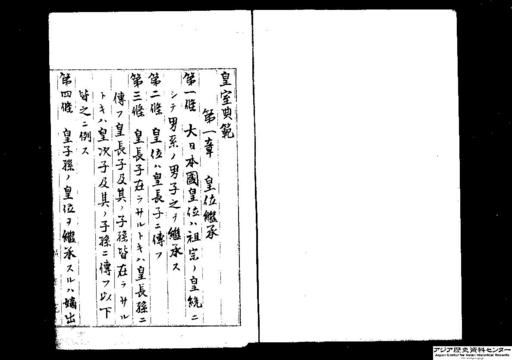 皇室典範
第一章 皇位継承
第一條 大日本國皇位ハ祖宗ノ皇統ニ
シテ男系ノ男子之ヲ継承ス
第二條 皇位ハ皇長子ニ傳フ
第三條 皇長子在ラサルトキハ皇長孫ニ
傳フ皇長子及其ノ子孫皆在ラサル
トキハ皇次子及其ノ子孫ニ傳フ以下
皆之ニ例ス
第四條 皇子孫ノ皇位ヲ継承スルハ嫡出
アジア歴史資料センター
Japan Center for Asian Historical Records